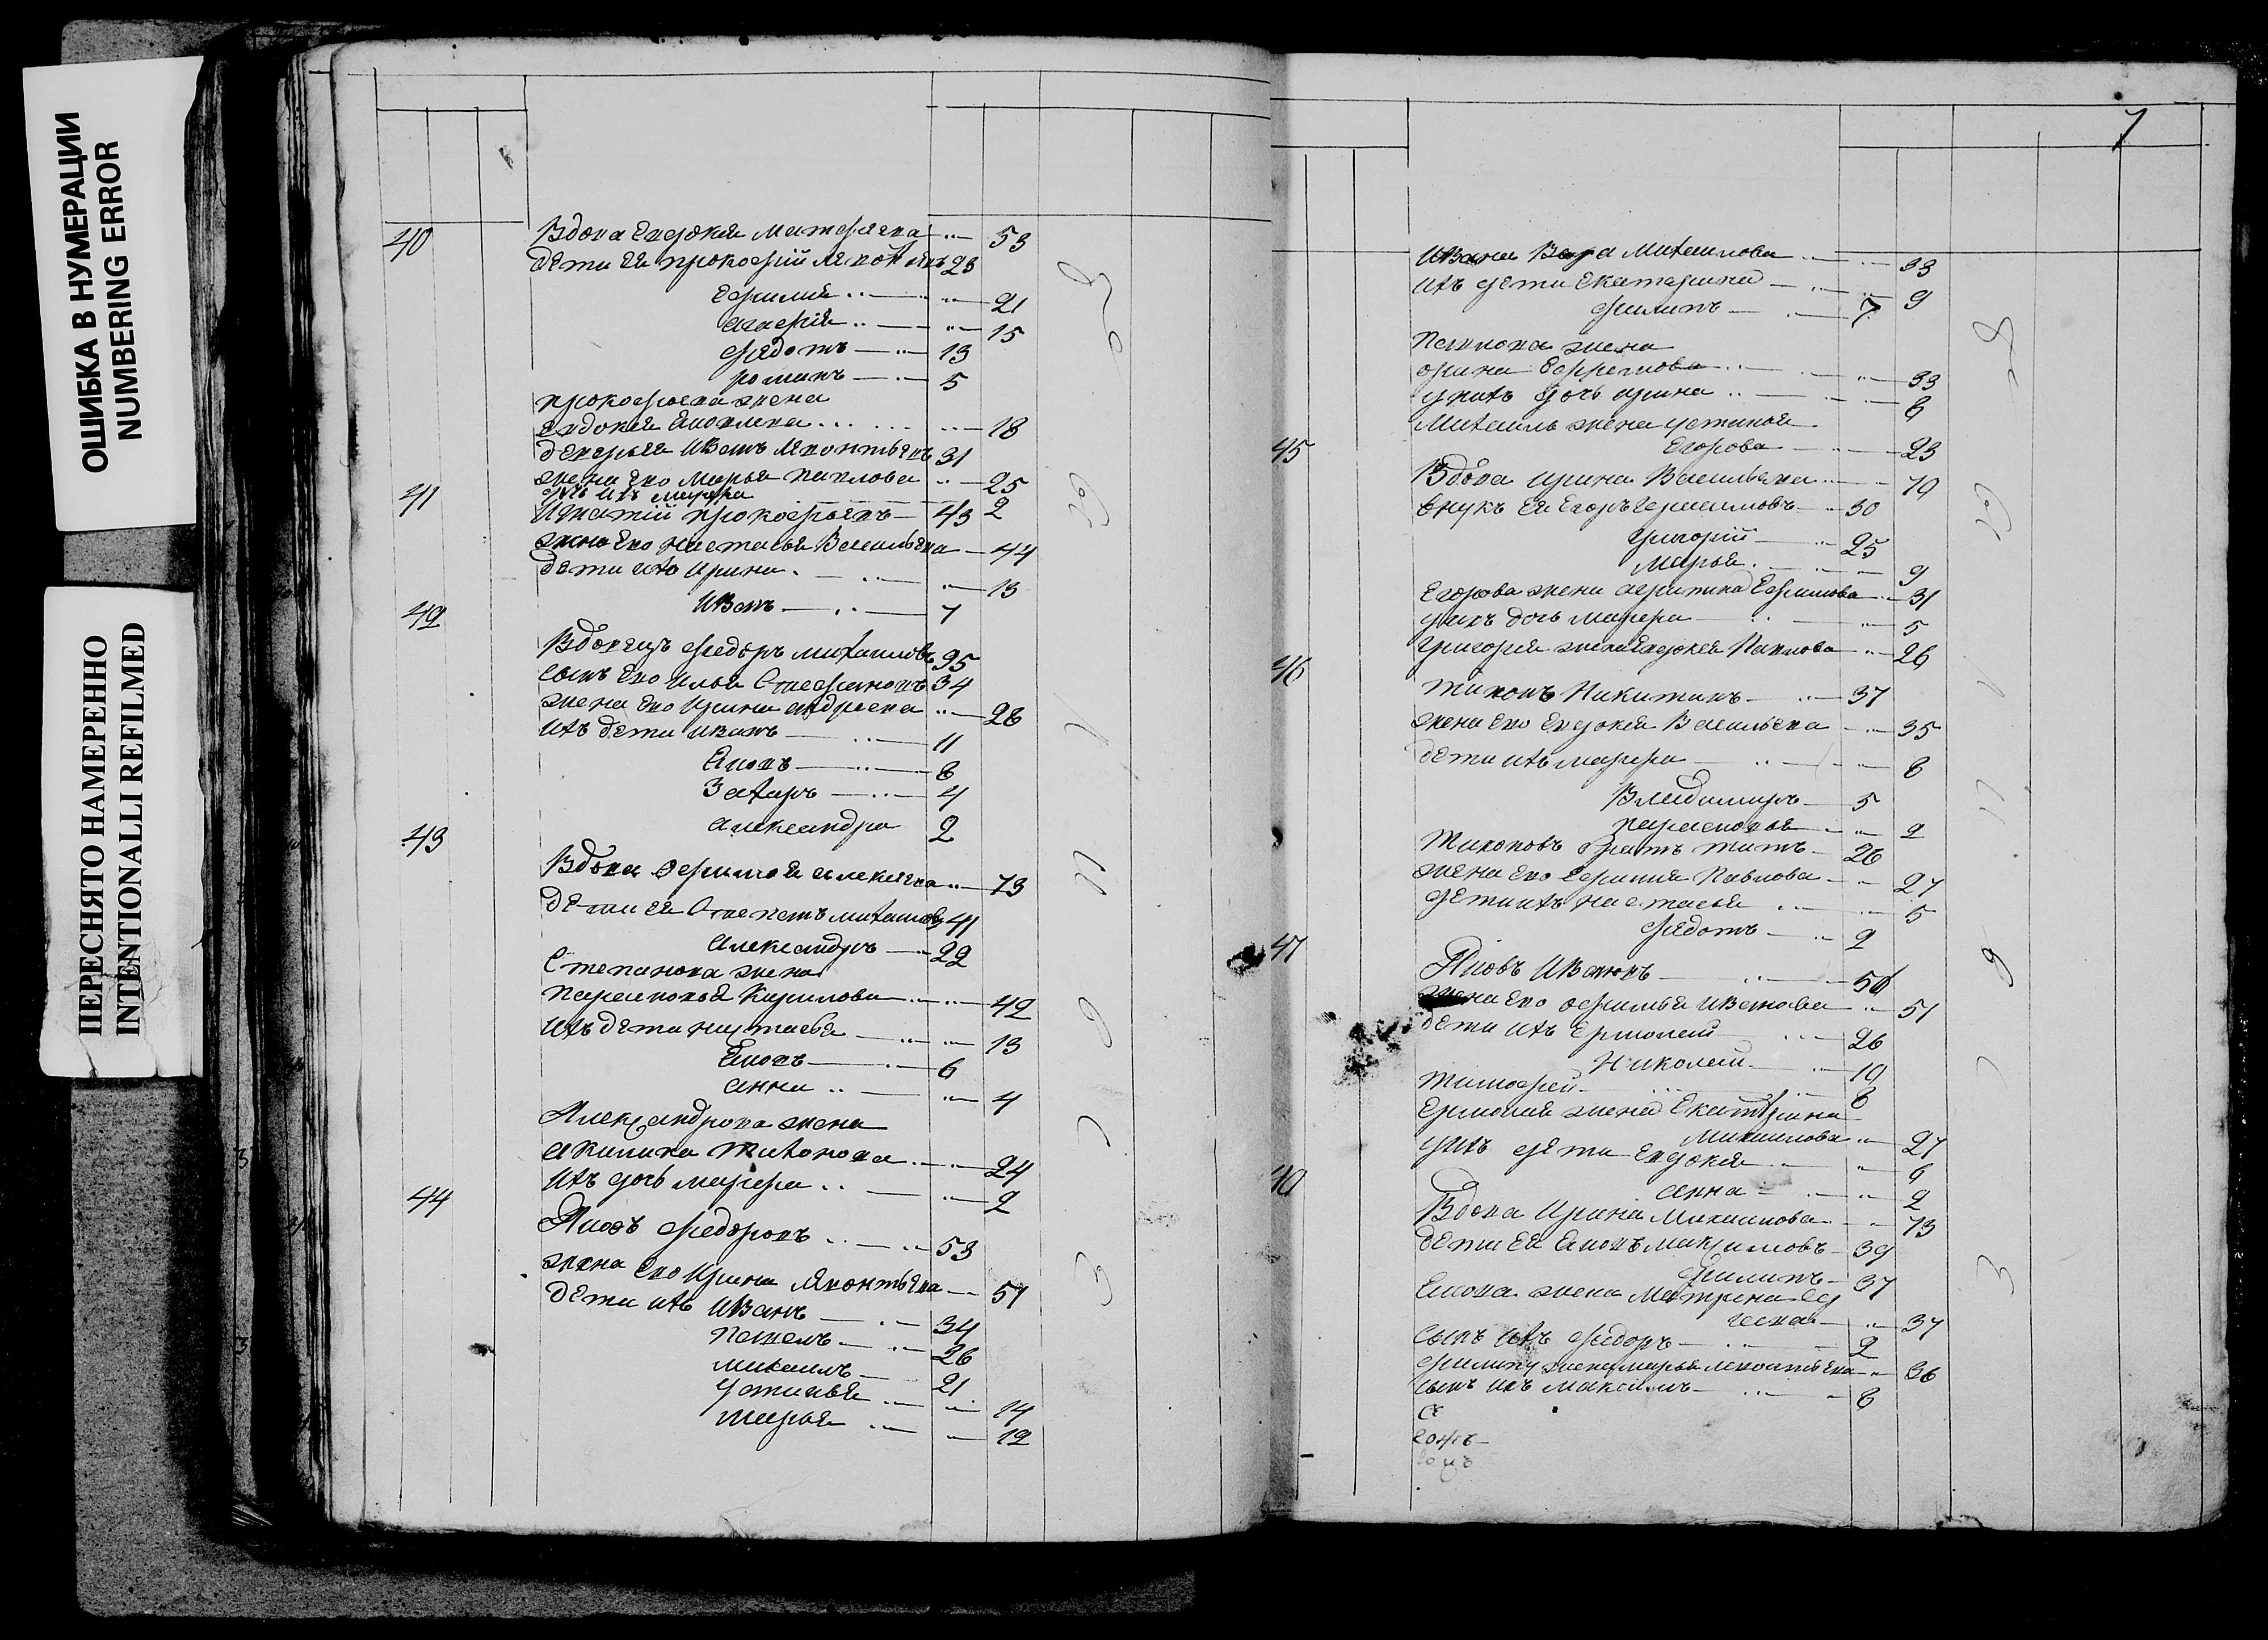 ОШИБКА В НУМЕРАЦИИ
NUMBERING ERROR
ПЕРЕСНЯТО НАМЕРЕННО
INTENTIONALLI REFILMED
40 Вдова Евдокея Матфѣева 53
дѣти ея прокофій 23
Ефимия 21
агафія 15
федотъ 13
романъ 5
прокофьева жена
евдокея Яковлева 18
Иванъ Леонтьевъ 31
жена ево Марья павлова 25
дочь ихъ марфа 2
41 Игнатій прокофьевъ 43
жена ево настасья Васильева 44
дѣти ихъ Ирина 13
Иванъ 7
42
Вдовецъ федоръ михаиловъ 95
сынъ ево илья 34
жена ево Ирина андреева 28
ихъ дѣти иванъ 11
Яковъ 8
Захаръ 4
александра 2
43
Вдова афимья алексѣева 73
дѣти ея Степанъ михаиловъ 41
александръ 22
Степанова жена
парасковья Кирилова 42
ихъ дѣти настасья 13
Яковъ 6
анна 4
Александрова жена
акилина тихонова 24
ихъ дочь марфа 2
44
Яковъ федоровъ 53
жена ево Ирина Леонтьева 51
дѣти ихъ Иванъ 34
павелъ 26
михаилъ 21
устинья 14
марья 12
7
Ивана Михаилова 33
ихъ дети Екатерина 9
филипъ 7
павлова жена
арина Ефремова 33
у нихъ дочь арина 8
Михаилъ жена устинья
Егорова 23
45
Вдова ирина Васильева 70
внукъ ея Егоръ Герасимовъ 30
григорій 25
марья 9
Егорова жена агрипина Ефимова 31
у нихъ дочь марфа 5
григорья жена Евдокея Павлова 26
46
тихонъ Никитинъ 37
жена ево Евдокея Васильева 35
дети ихъ марфа 8
Владимиръ 5
парасковья 2
тихоновъ братъ титъ 26
жена ево ефимия Павлова 27
дети ихъ настасья 5
федотъ 2
47
Яковъ Ивановъ 50
жена ево афимья иванова 51
дети ихъ Ермолай 26
Николай 19
тимофей 8
Ермолая жена Екатерина
Михаилова 27
у нихъ дѣти Евдокея 6
анна 2
Вдова Ирина 73
дѣти ея Яковъ 39
филипъ 37
Якова жена Матрена 37
сынъ ихъ федоръ 2
филипа жена марья леонтьева 36
сынъ ихъ максимъ 8